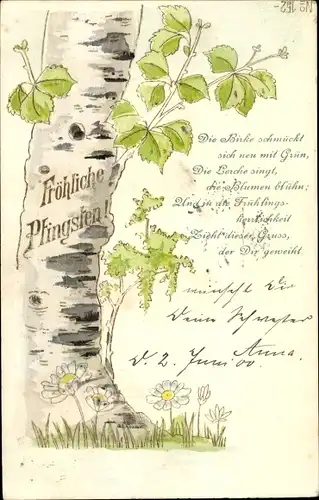 No 152.
Fröhliche
Pfingsten!
Die Birke schmückt
sich neu mit Grün,
Die Lerche singt,
die Blumen blühn;
Und in die Frühlings-
herrlichkeit
Zieht dieser Gruss,
der Dir geweiht.
wünscht Dir
Deine Schwester
Anna.
D. 2. Juni 00.